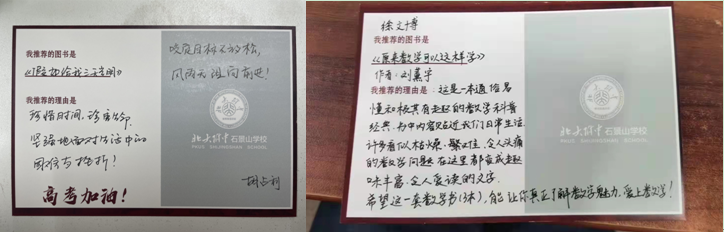 我推荐的图书是
《假如给我三天光明》
我推荐的理由是
珍惜时间，珍惜生命
坚强地面对生活中的
困难与挫折！
高考加油！
咬定目标不放松，
风雨无阻向前进！
北大附中石景山学校
徐文博
我推荐的图书是
《原来数学可以这样学》
作者：刘薰宇
我推荐的理由是：这是一本通俗易
懂和极具有趣的数学科普
经典，书中内容贴近我们日常生活
许多看似枯燥、繁难、令人头痛
的数学问题在这里都变成趣
味丰富、令人爱读的文字。
希望这一套数学书(3本)，能让你真正了解数学魅力，爱上数学！
北大附中石景山学校